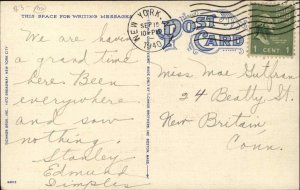 THIS SPACE FOR WRITING MESSAGES
POST CARD
NEW YORK, N.Y.
SEP 15
1940
1 CENT 1
We are having
a grand time
here. Been
everywhere
and saw
nothing.
Stanley
Edmund
Dimples
Miss Mae Gutfran
24 Beatty St.
New Britain
Conn.